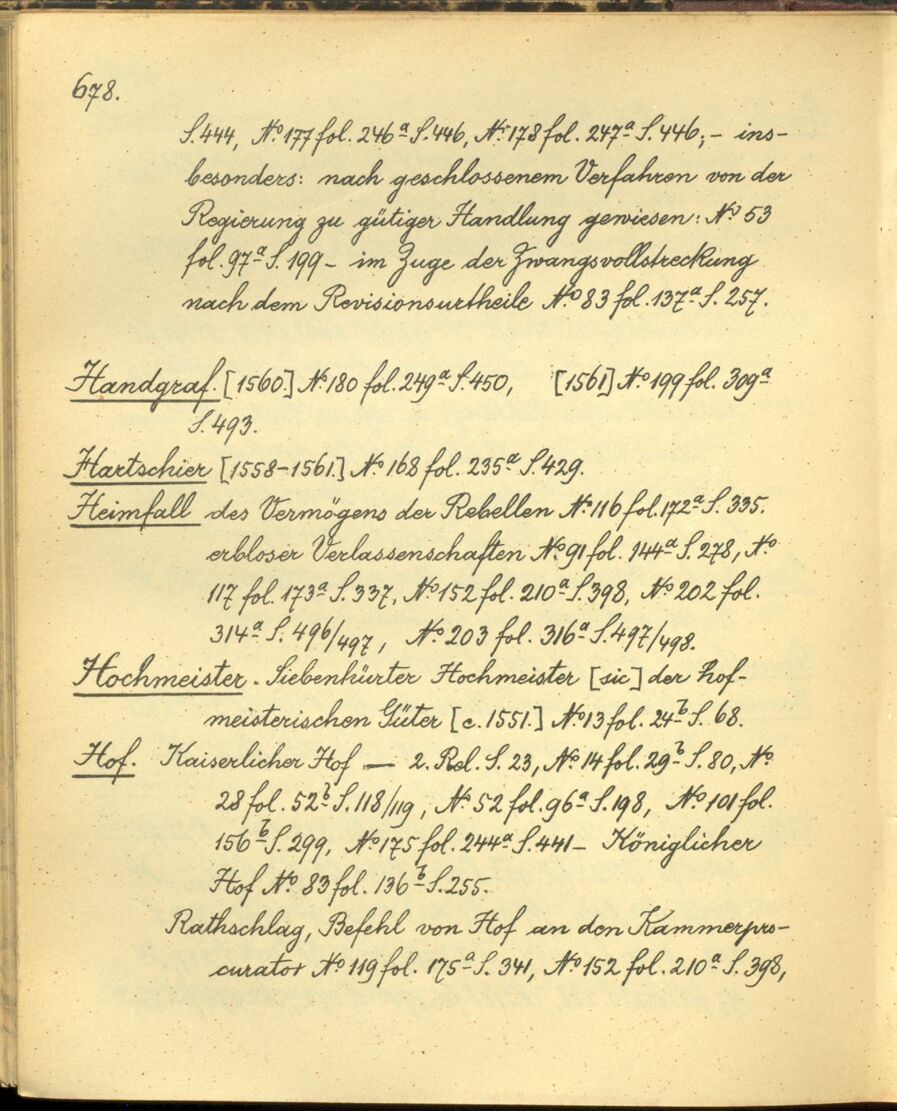 678.
S. 444, Nº 177 fol. 246ª S. 446, Nº 178 fol. 247ª S. 446; - ins-
besonders: nach geschlossenem Verfahren von der
Regierung zu gütiger Handlung gewiesen: Nº 53
fol. 97ª S. 199 - im Zuge der Zwangsvollstreckung
nach dem Revisionsurtheile Nº 83 fol. 137ª S. 257.
Handgraf. [1560.] Nº 180 fol. 249ª S. 450, [1561] Nº 199 fol. 309ª
S. 493.
Hartschier [1558-1561.] Nº 168 fol. 235ª S. 429.
Heimfall des Vermögens der Rebellen Nº 116 fol. 172ª S. 335.
erbloser Verlassenschaften Nº 91 fol. 144ª S. 278, Nº
117 fol. 173ª S. 337, Nº 152 fol. 210ª S. 398, Nº 202 fol.
314ª S. 496/497, Nº 203 fol. 316ª S. 497/498.
Hochmeister. Siebenhürter Hochmeister [sic] der hof-
meisterischen Güter [c. 1551.] Nº 13 fol. 24b S. 68.
Hof. Kaiserlicher Hof — 2. Rel. S. 23, Nº 14 fol. 29b S. 80, Nº
28 fol. 52b S. 118/119, Nº 52 fol. 96ª S. 198, Nº 101 fol.
156b S. 299, Nº 175 fol. 244ª S. 441 - Königlicher
Hof Nº 83 fol. 136b S. 255.
Rathschlag, Befehl von Hof an den Kammerpro-
curator Nº 119 fol. 175ª S. 341, Nº 152 fol. 210ª S. 398,